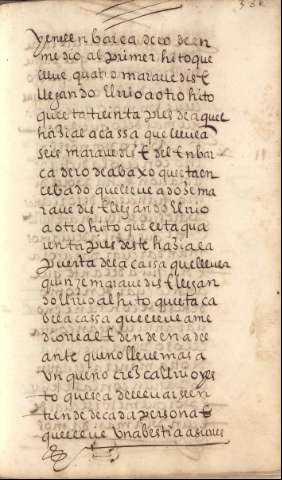 y en el enbarcadero de en
medio al primer hito que
lleue quatro maravedis E
llegando el rio a otro hito
que esta treinta pies de aquel
hazia la cassa que lleue a
seis maravedis E del Enbar
cadero de abaxo que esta en
cebado que lleue a dos ma
ravedis E llegando el rio
a otro hito que esta qua
renta pies deste hazia la
puerta de la cassa que lleuen
quinze maravedis E llegan
do el rio al hito que esta ca
be la cassa que lleue a me
dio real E dende en ade
ante que no lleue mas a
un que no crezca el rio y es
to que sea de lleuar se en
tiende de cada persona E
que lleue una bestia